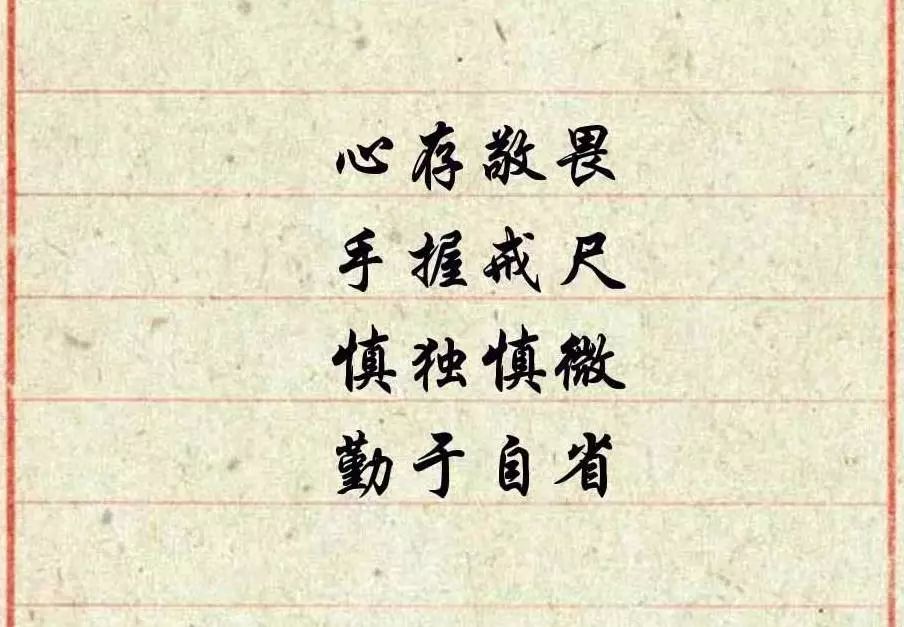 心存敬畏
手握戒尺
慎独慎微
勤于自省